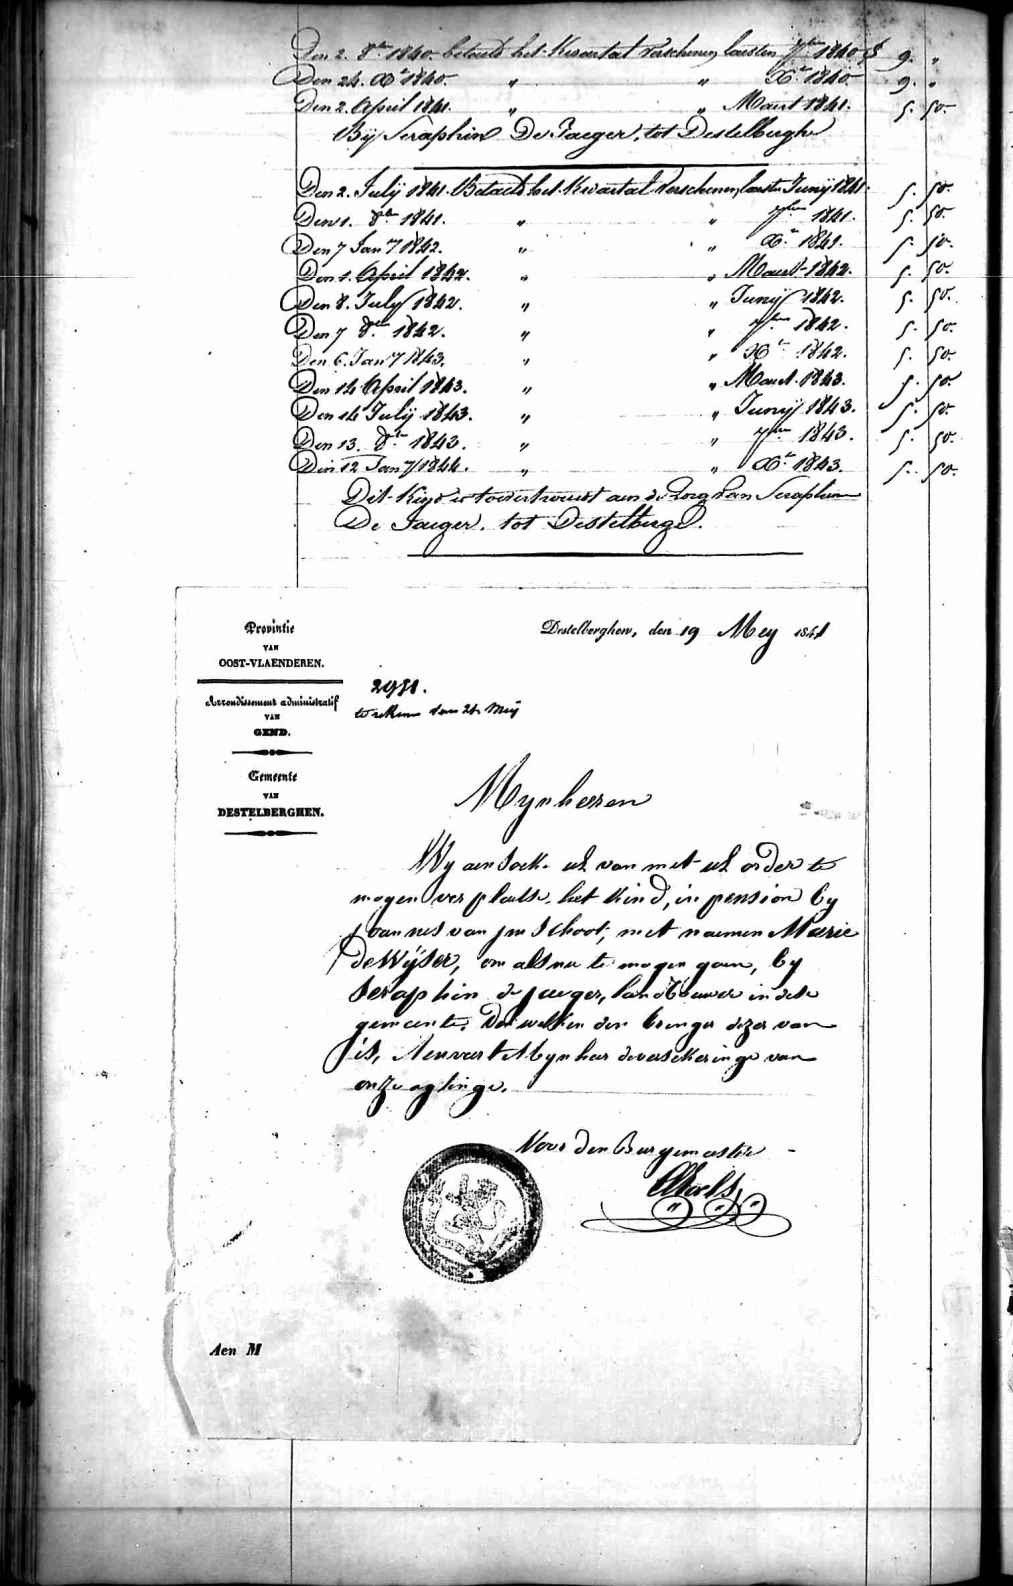 Den 2. 8bre 1840. betaeld het Kwartal verschenen laesten 7bre 1840 f 9. "
Den 24. Xbr 1840. " " Xbr 1840. 9. "
Den 2. April 1841. " " Maert 1841. 5. 50.
Bij Seraphin De Jaeger, tot Destelberghe
Den 2. Julij 1841. Betaeld het Kwartal Verschenen, laeste Junij 1841. 5. 50.
Den 1. 8bre 1841. " " 7bre 1841. 5. 50.
Den 7 Jany 1842. " " Xbr 1841. 5. 50.
Den 1. April 1842. " " Maert 1842. 5. 50.
Den 8. July 1842. " " Junij 1842. 5. 50.
Den 7 8bre 1842. " " 7bre 1842. 5. 50.
Den 6. Jany 1843. " " Xbr 1842. 5. 50.
Den 14 April 1843. " " Maert 1843. 5. 50.
Den 14 Julij 1843. " " Junij 1843. 5. 50.
Den 13. 8bre 1843. " " 7bre 1843. 5. 50.
Den 12 Jany 1844. " " Xbr 1843. 5. 50.
Dit Kind is toevertrouwt aen de Zorg van Seraphin
De Jaeger, tot Destelberge.
Provintie
VAN
OOST-VLAENDEREN.
Arrondissement administratif
VAN
GEND.
Gemeente
VAN
DESTELBERGHEN.
Destelberghen, den 19 Mey 1841
2951.
te rekenen den 21 Meij
Mynheeren
Wy aensoeke ul van met ul order te
mogen verplaetse, het kind, in pension by
joannes van jmschoot, met naemen Marie
de Wyser, om alsnu te mogen gaen, by
seraphin de jaeger, landbouwer in dese
gemeente, den welken den brenger dezer van
is, Aenveert Mynheer de versekeringe van
onze agtinge.
Voor den Burgemester
Aen M